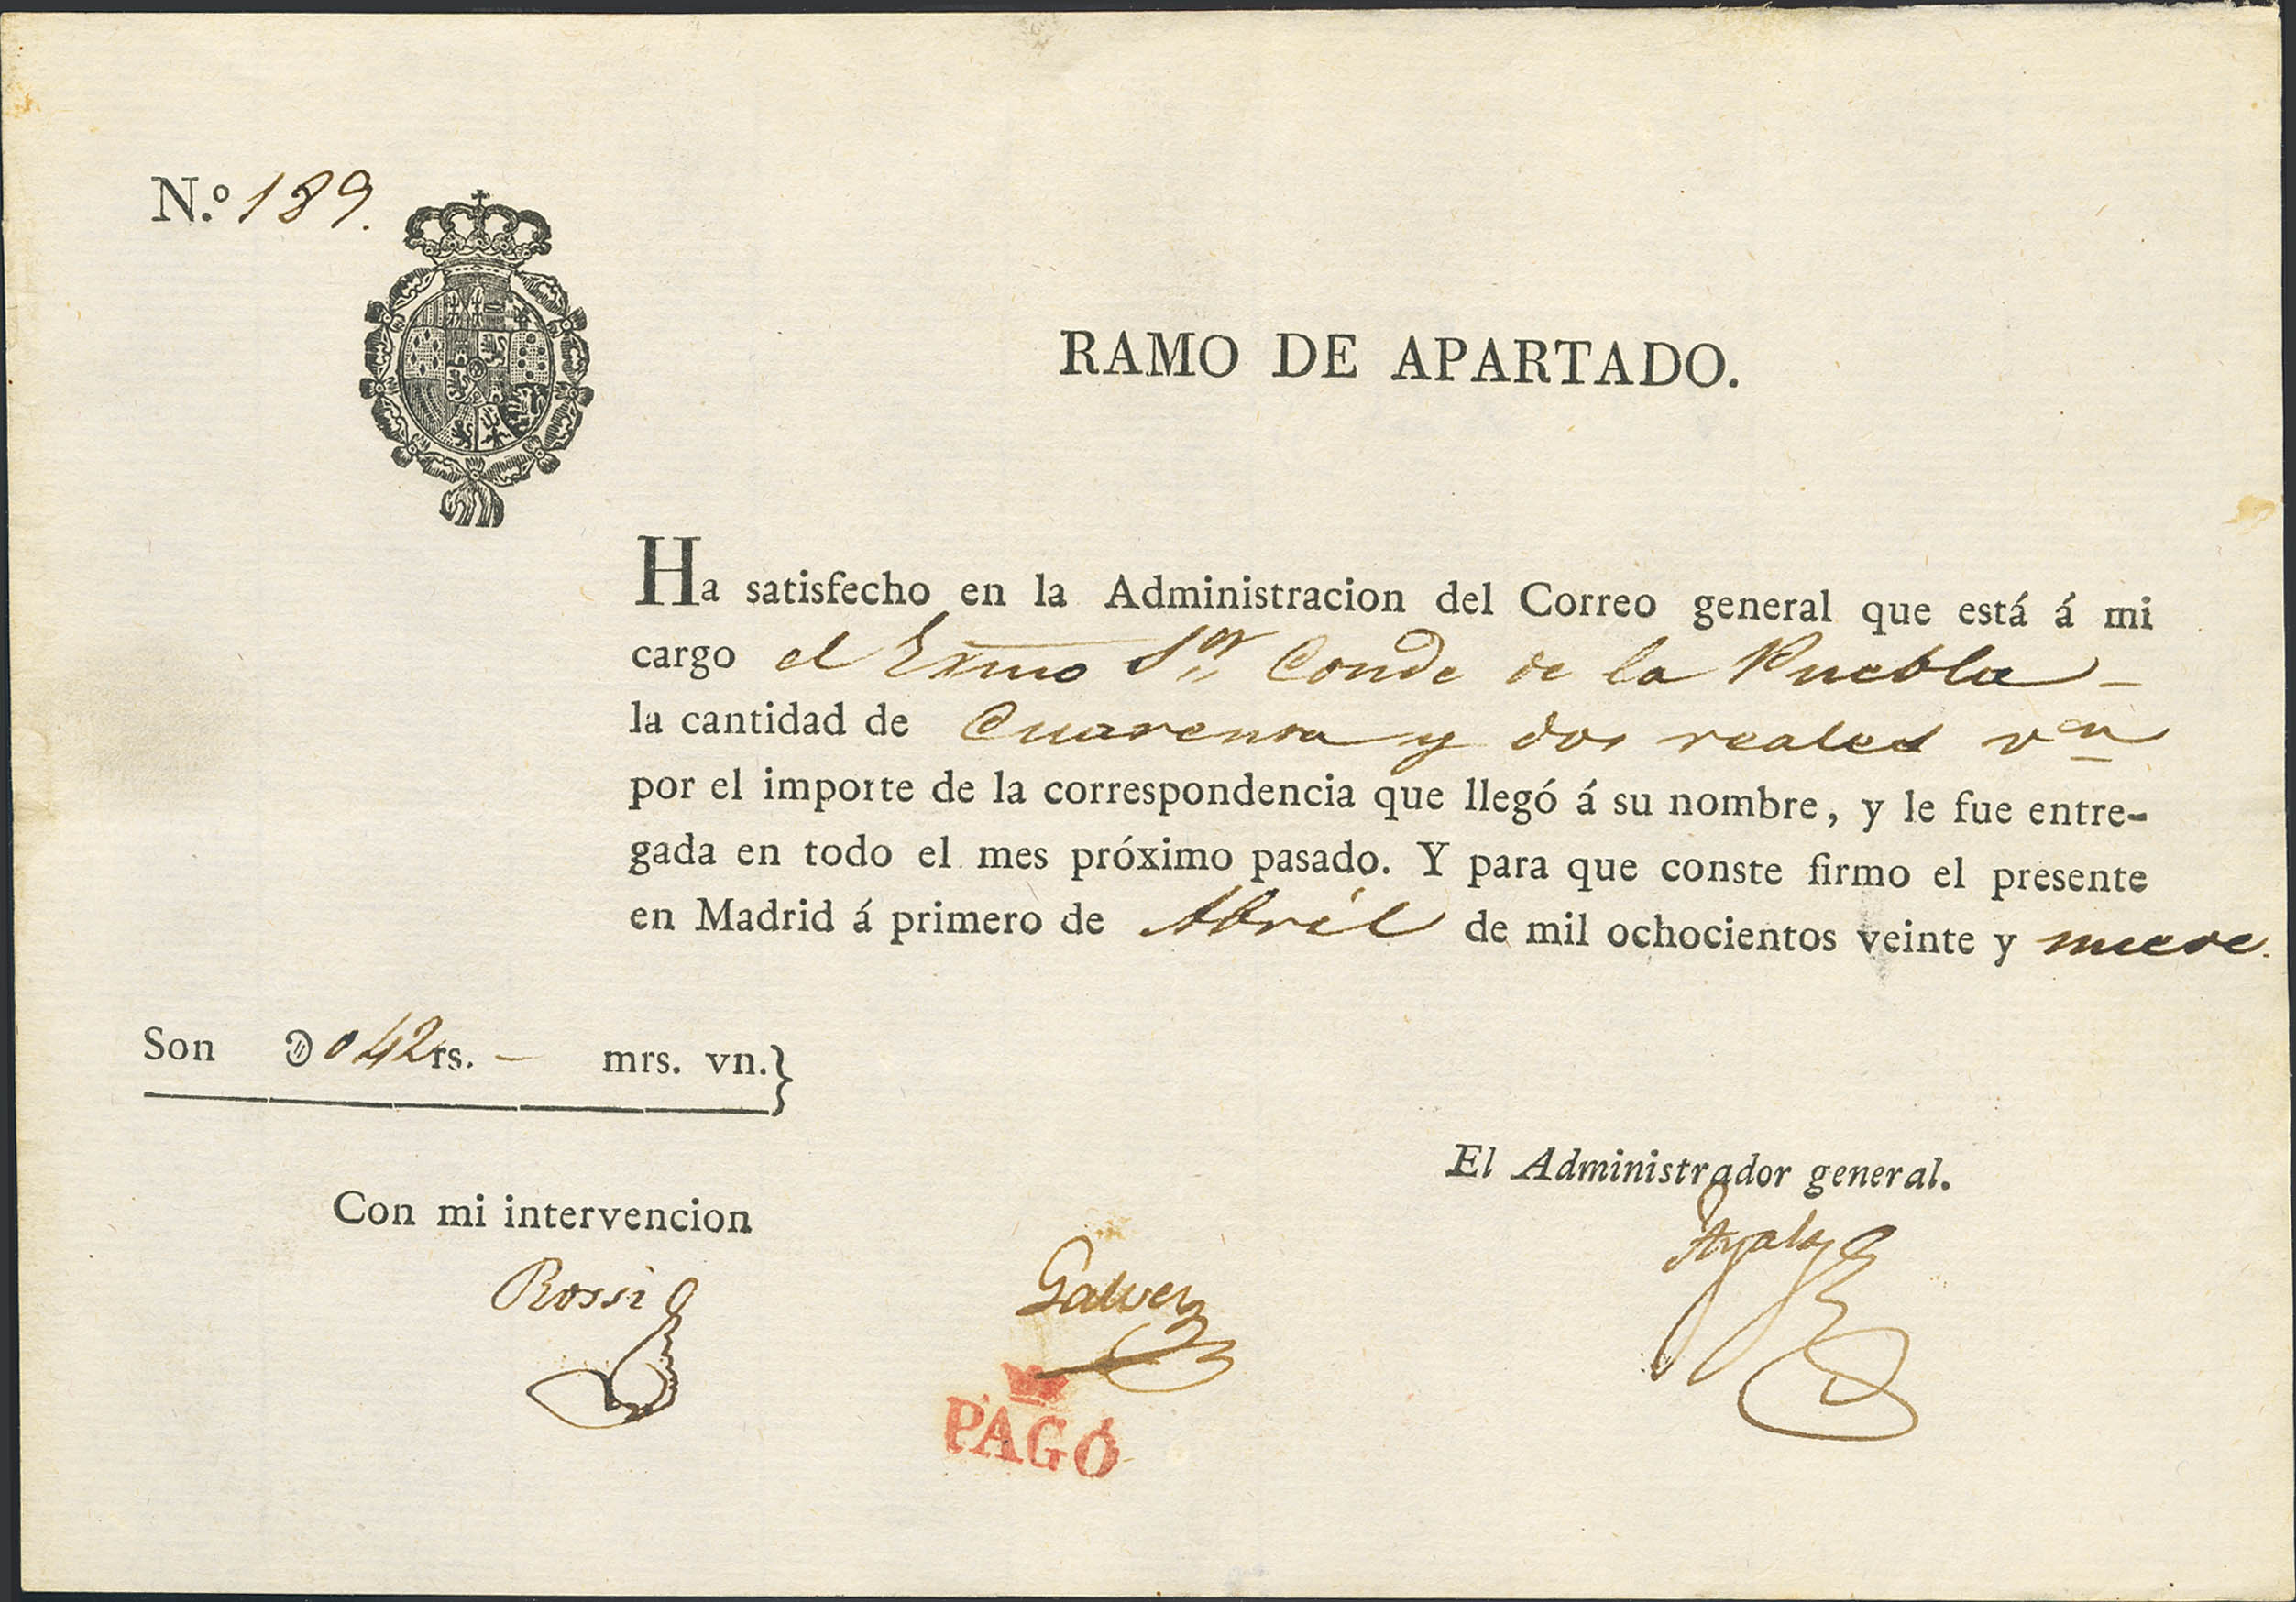 N.º 189.
RAMO DE APARTADO.
Ha satisfecho en la Administracion del Correo general que está á mi
cargo el Exmo Sor Conde de la Puebla
la cantidad de Cuarenta y dos reales vn
por el importe de la correspondencia que llegó á su nombre, y le fue entre-
gada en todo el mes próximo pasado. Y para que conste firmo el presente
en Madrid á primero de Abril de mil ochocientos veinte y nueve.
Son 042 rs. - mrs. vn.}
El Administrador general.
Con mi intervencion
Ayala
Rossi
Galvez
PAGÓ